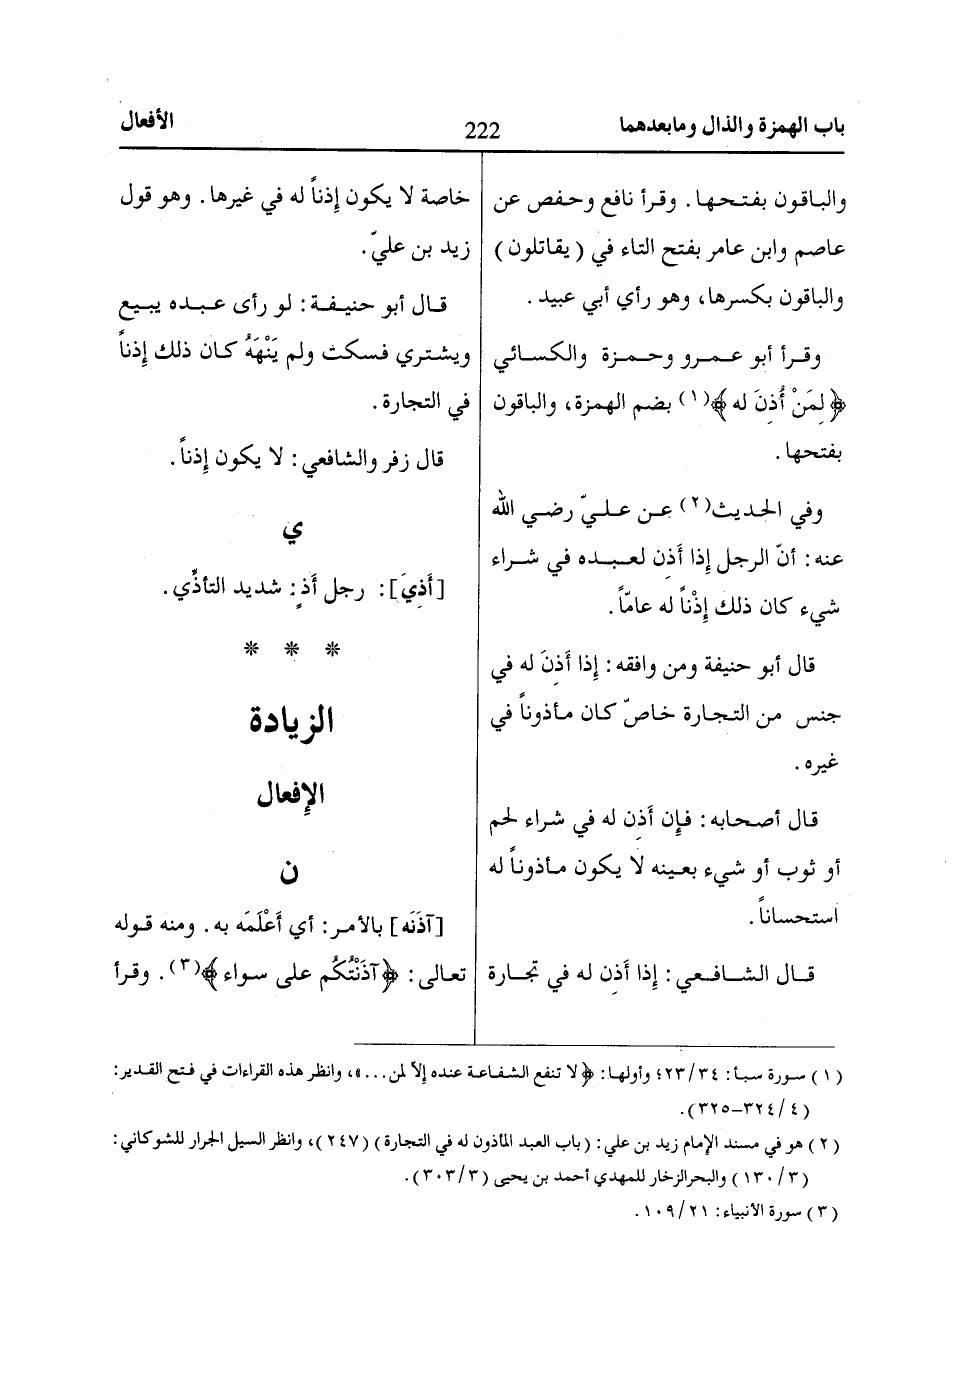 باب الهمزة والذال ومابعدهما
222
الأفعال
والباقون بفتحها. وقرأ نافع وحفص عن
عاصم وابن عامر بفتح التاء في (يقاتلون)
والباقون بكسرها، وهو رأي أبي عبيد.
وقرأ أبو عمرو وحمزة والكسائي
﴿لِمَنْ أُذِنَ له﴾(١) بضم الهمزة، والباقون
بفتحها.
وفي الحديث(٢) عن عليّ رضي الله
عنه: أنّ الرجل إذا أَذِن لعبده في شراء
شيء كان ذلك إِذْناً له عامّاً.
قال أبو حنيفة ومن وافقه: إذا أَذِنَ له في
جنس من التجارة خاصّ كان مأذوناً في
غيره.
قال أصحابه: فإن أَذِن له في شراء لحم
أو ثوب أو شيء بعينه لا يكون مأذوناً له
استحساناً.
قال الشافعي: إذا أَذِن له في تجارة
خاصة لا يكون إِذناً له في غيرها. وهو قول
زيد بن عليّ.
قال أبو حنيفة: لو رأى عبده يبيع
ويشتري فسكت ولم يَنْهَهُ كان ذلك إِذناً
في التجارة.
قال زفر والشافعي: لا يكون إِذناً.
ي
[أَذِيَ]: رجل أَذٍ: شديد التأذّي.
* * *
الزيادة
الإفعال
ن
[آذَنَه] بالأمر: أي أَعْلَمَه به. ومنه قوله
تعالى: ﴿آذَنْتُكُم على سواء﴾(٣). وقرأ
(١) سورة سبأ: ٢٣/٣٤؛ وأولها: ﴿لا تنفع الشفاعة عنده إلاّ لمن...﴾، وانظر هذه القراءات في فتح القدير:
(٤/ ٣٢٤–٣٢٥).
(٢) هو في مسند الإمام زيد بن علي: (باب العبد المأذون له في التجارة) (٢٤٧)، وانظر السيل الجرار للشوكاني:
(٣/ ١٣٠) والبحرالزخار للمهدي أحمد بن يحيى (٣/ ٣٠٣).
(٣) سورة الأنبياء: ٢١/ ١٠٩.